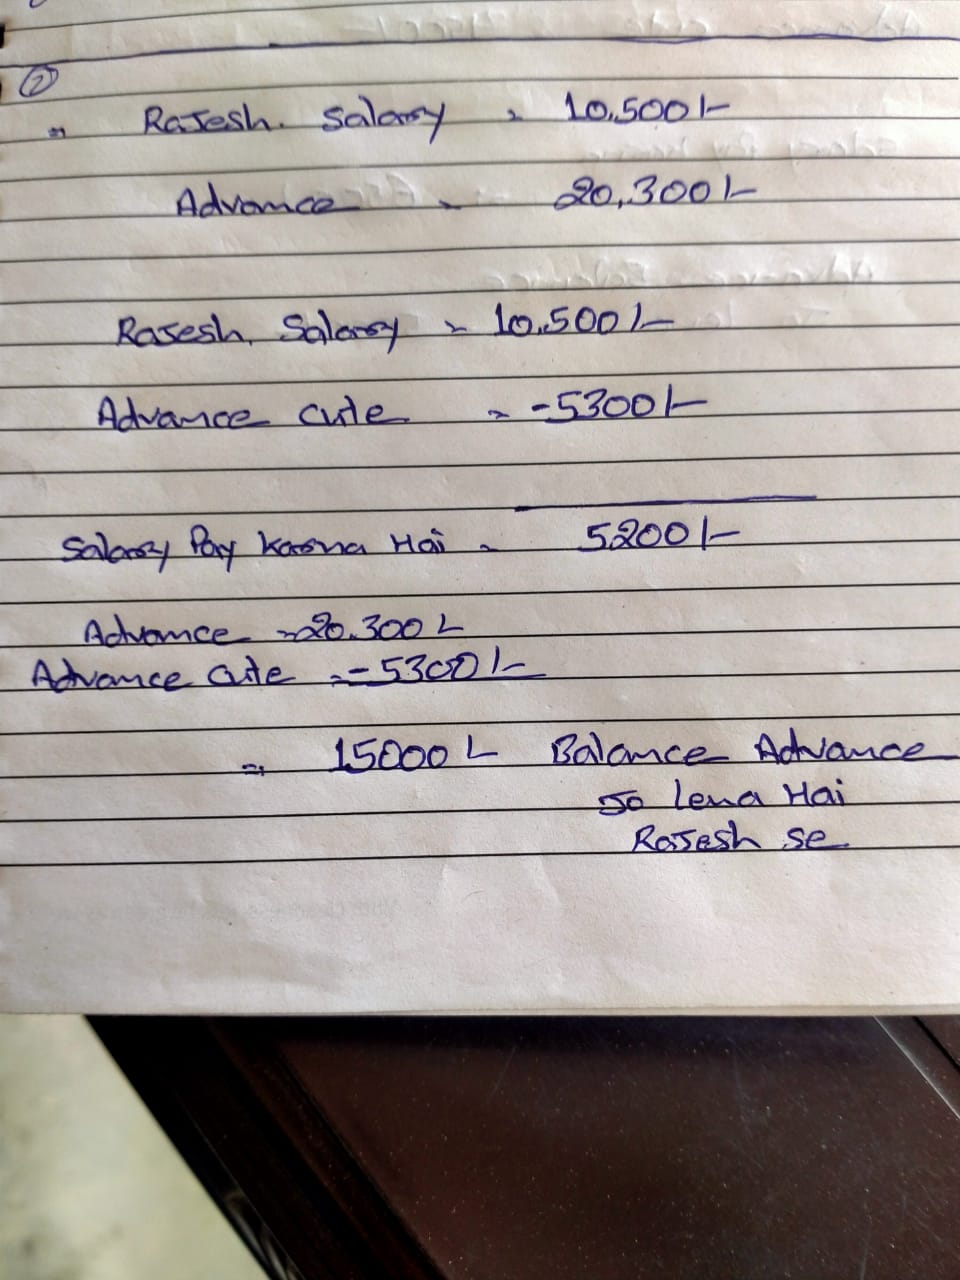 ②
=, Rajesh. Salary = 10,500/-
Advance = 20,300/-
Rajesh. Salary = 10,500/-
Advance cute = -5300/-
Salary Pay karna Hai = 5200/-
Advance = 20,300/-
Advance cute = -5300/-
=, 15000/- Balance Advance
Jo lena Hai
Rajesh se